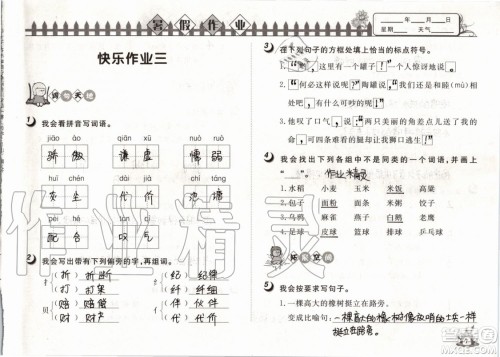 暑假作业
快乐作业三
词句天地
1. 我会看拼音写词语。
jiāo ào qiān xū nuò ruò
骄傲 谦虚 懦弱
huī chén dài jià chí táng
灰尘 代价 池塘
pèi hé tàn qì
配合 叹气
2. 我会写出带有下列偏旁的字，再组词。
扌 (折) 折断 纟 (纪) 纪律
(打) 打架 (细) 纤细
贝 (赔) 赔偿 亻 (伴) 伙伴
(财) 财产 (代) 代价
____年____月____日
星期____ 天气____
3. 在下列句子的方框处填上恰当的标点符号。
1. “咦，这里有一个罐子！”一个人惊讶地说。
2. “何必这样说呢？”陶罐说，“我们还是和睦(mù)相处吧，有什么可吵的呢！”
3. 他叹了口气，说：“两只美丽的角差点儿送了我的命，可四条难看的腿却让我狮口逃生！”
4. 我会找出下列各组中不是同类的一个词语，并画上“____”。
作业精灵
1. 水稻 小麦 玉米 米饭 高粱
2. 包子 面粉 面条 饼干 面包
3. 乌鸦 麻雀 燕子 白鹅 老鹰
4. 足球 皮球 篮球 排球 乒乓球
5. 我会按要求写句子。
1. 一棵高大的橡树挺立在路旁。
变成比喻句：一棵高大的橡树像威武的士兵一样挺立在路旁。
作业精灵